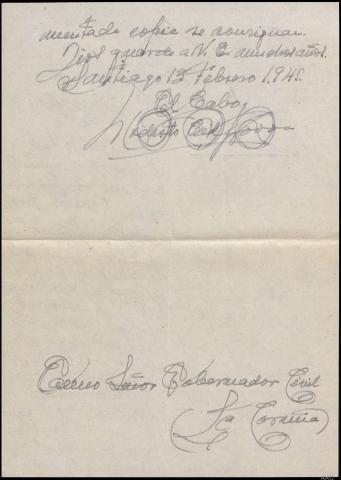 mentado copia se consignan.
Dios guarde a V. E. muchos años.
Santiago 13 Febrero 1.941.
El Cabo,
Modesto
Excmo Señor Gobernador Civil
(La Coruña)